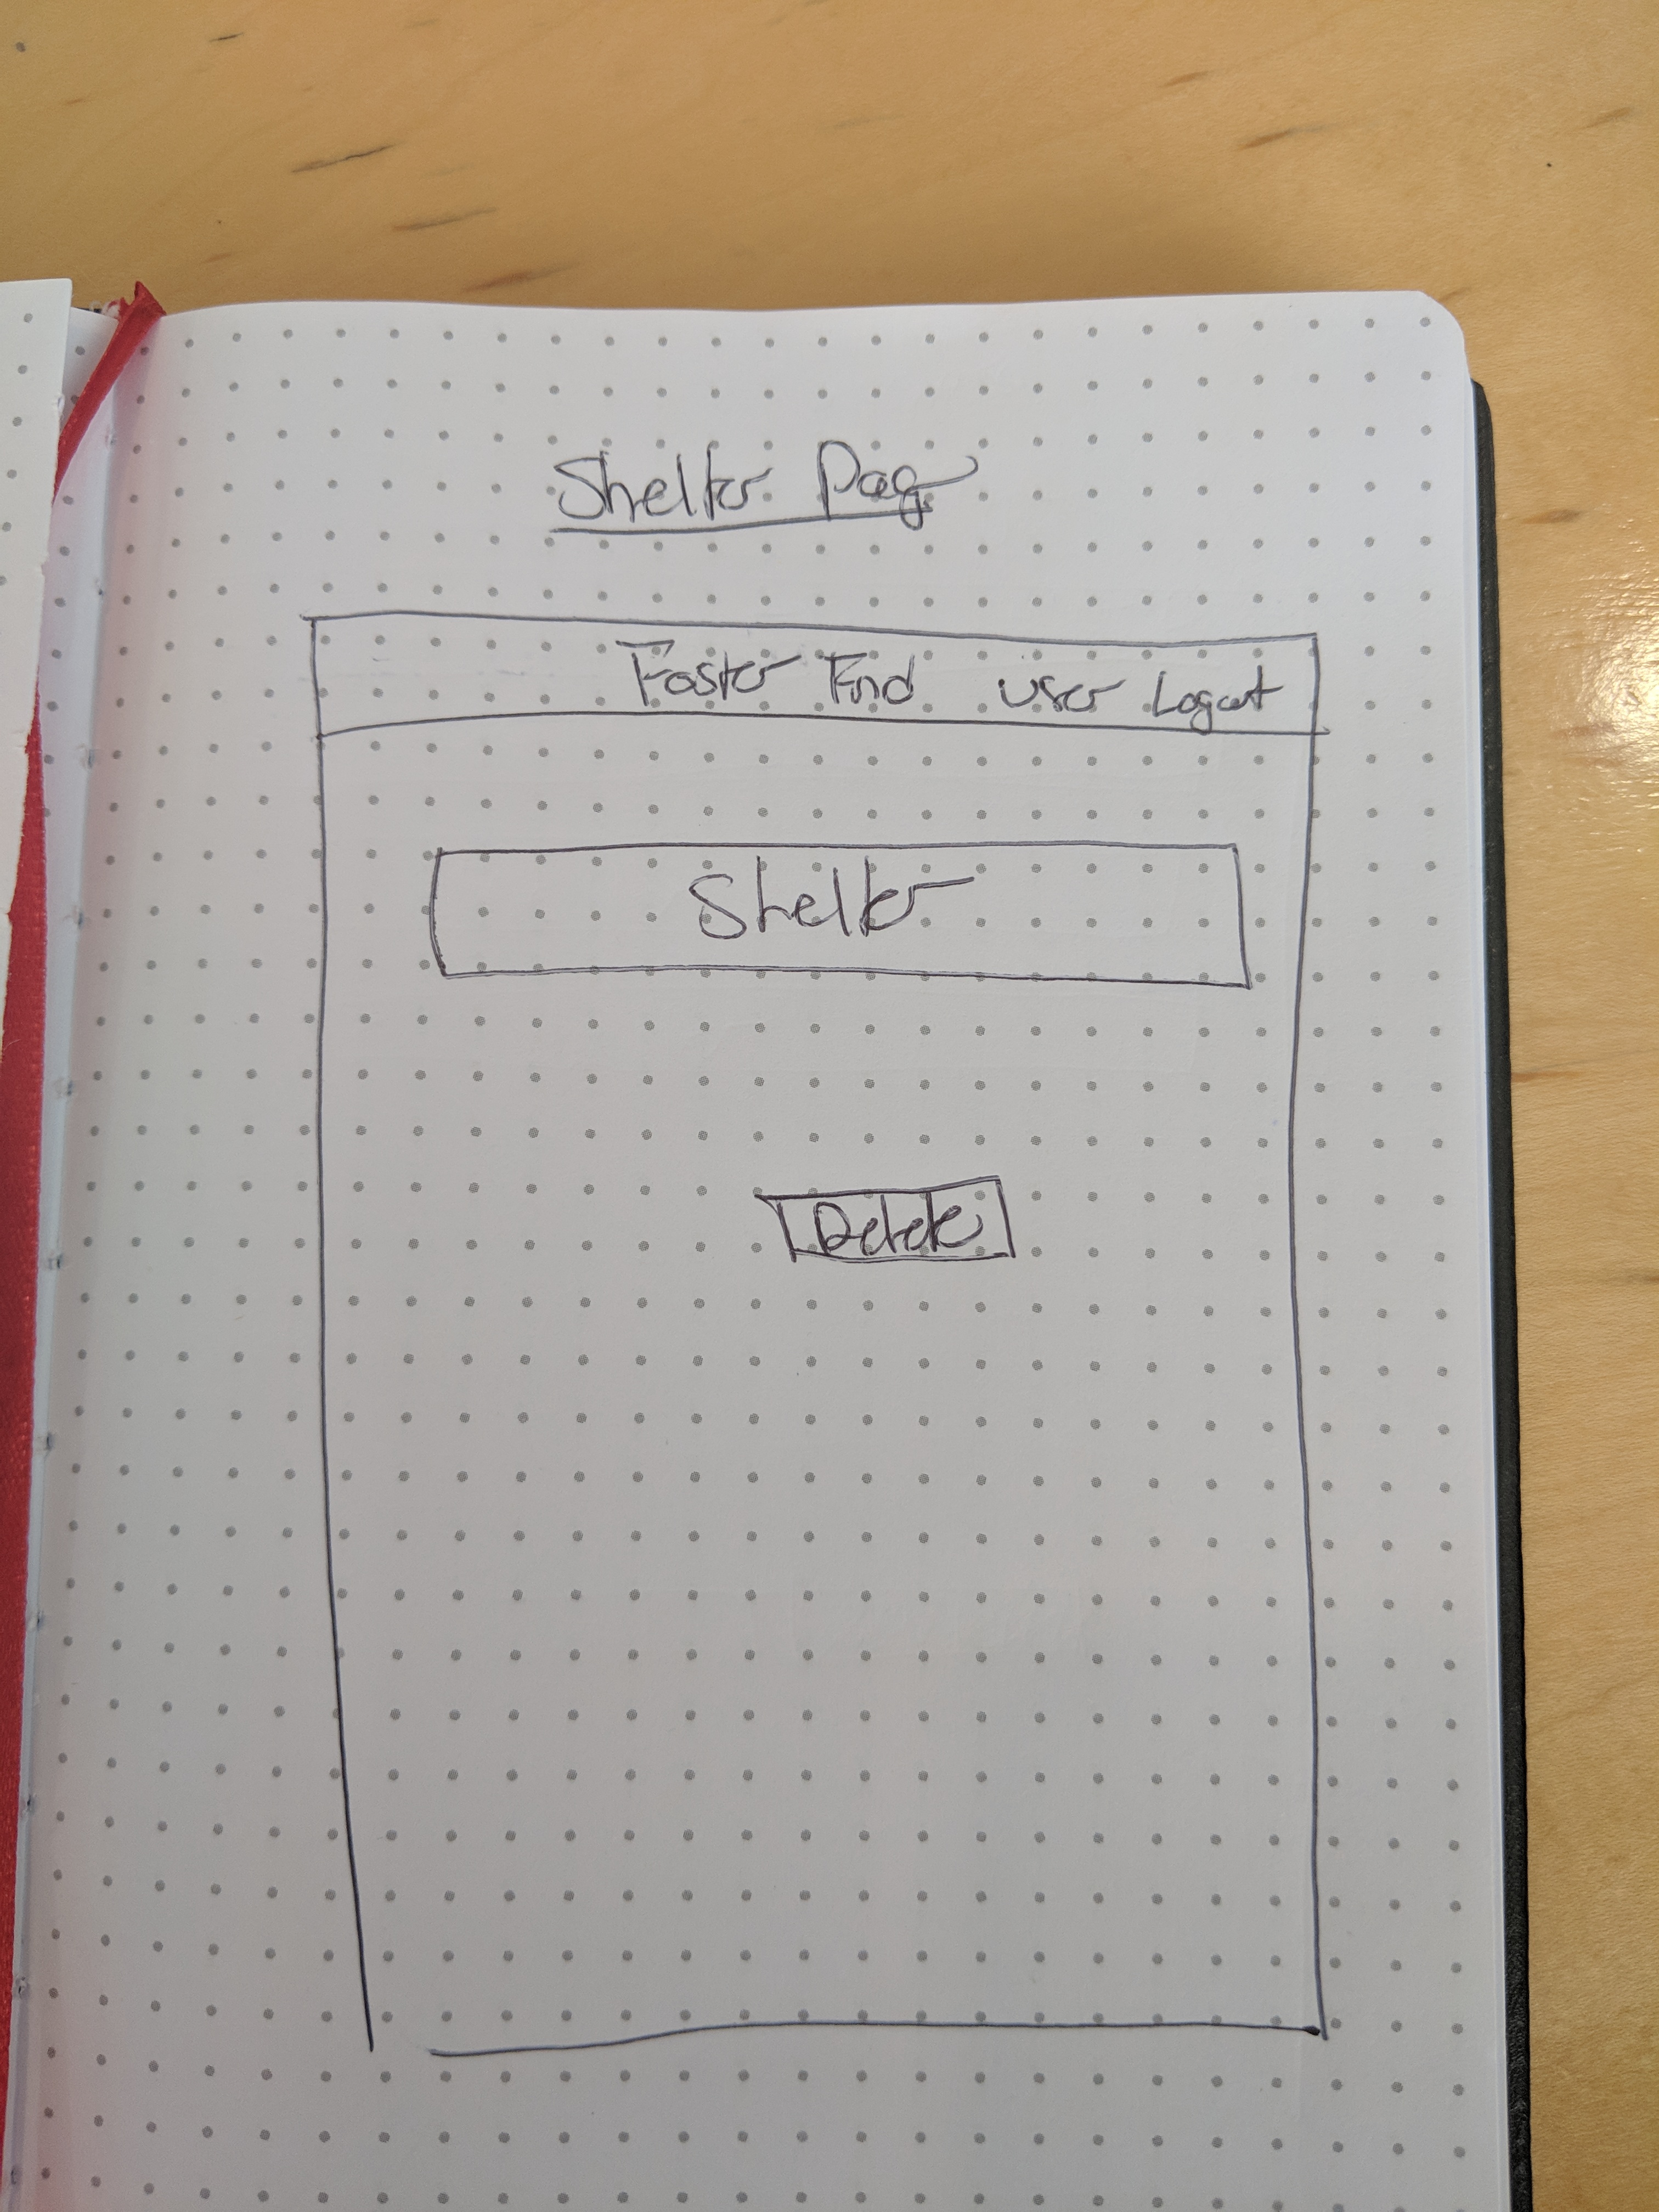 Shelter Page
Foster Find User Logout
Shelter
Delete